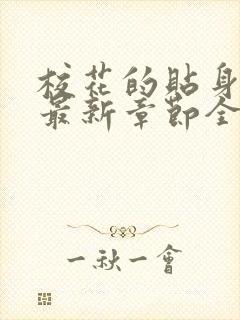 校花的貼身
最新章節全
一秋一會